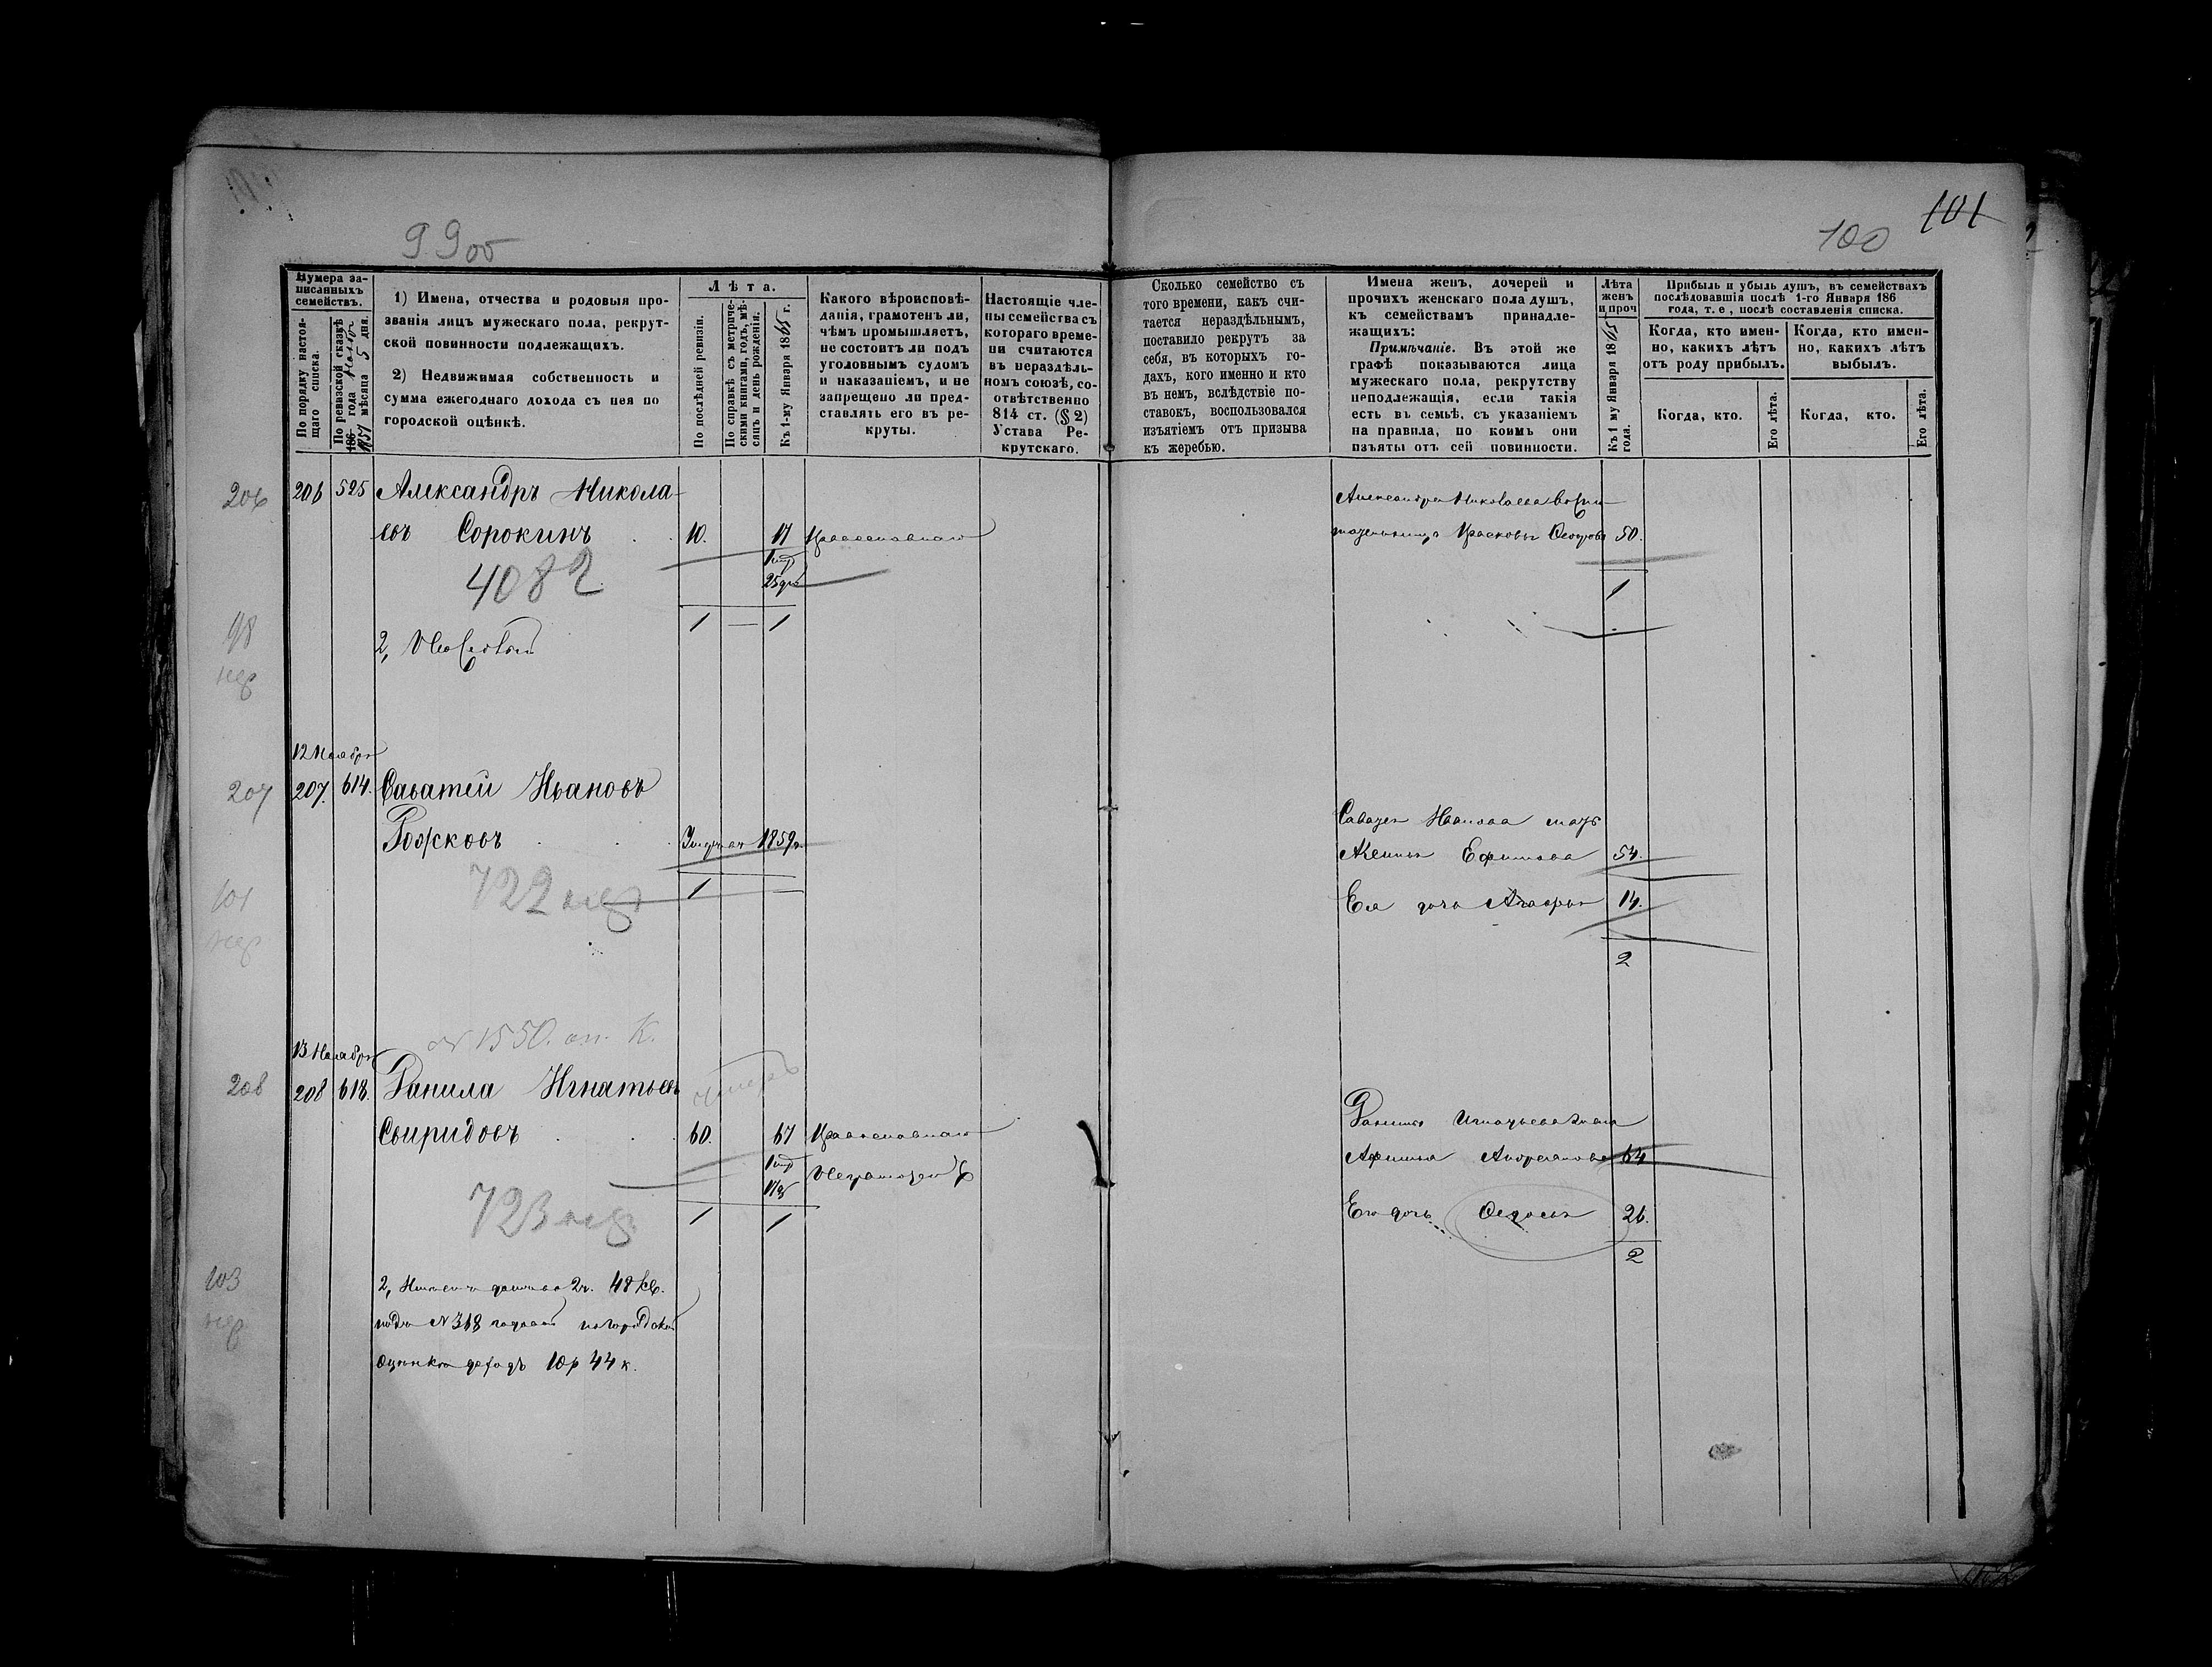 99об
101
100
Нумера записанныхъ семействъ.
По порядку настоящаго списка.
По ревизской сказкѣ 186 1857 года мѣсяца 5 дня.
1) Имена, отчества и родовыя прозванія лицъ мужескаго пола, рекрутской повинности подлежащихъ.
2) Недвижимая собственность и сумма ежегоднаго дохода съ нея по городской оцѣнкѣ.
Лѣта.
По послѣдней ревизіи.
По справкѣ съ метрическими книгами, годъ, мѣсяцъ и день рожденія.
Къ 1-му Января 1865 г.
Какого вѣроисповѣданія, грамотенъ ли, чѣмъ промышляетъ, не состоитъ ли подъ уголовнымъ судомъ и наказаніемъ, и не запрещено ли представлять его въ рекруты.
Настоящіе члены семейства съ котораго времени считаются въ нераздѣльномъ союзѣ, соотвѣтственно 814 ст. (§ 2) Устава Рекрутскаго.
Сколько семейство съ того времени, какъ считается нераздѣльнымъ, поставило рекрутъ за себя, въ которыхъ годахъ, кого именно и кто въ немъ, вслѣдствіе поставокъ, воспользовался изъятіемъ отъ призыва къ жеребью.
Имена женъ, дочерей и прочихъ женскаго пола душъ, къ семействамъ принадлежащихъ:
Примѣчаніе. Въ этой же графѣ показываются лица мужескаго пола, рекрутству неподлежащія, если такія есть въ семьѣ, съ указаніемъ на правила, по коимъ они изъяты отъ сей повинности.
Лѣта женъ и проч
Къ 1 му Января 1865 года.
Прибыль и убыль душъ, въ семействахъ послѣдовавшія послѣ 1-го Января 186 года, т. е, послѣ составленія списка.
Когда, кто именно, какихъ лѣтъ отъ роду прибылъ.
Когда, кто именно, какихъ лѣтъ выбылъ.
Когда, кто.
Его лѣта.
Когда, кто.
Его лѣта.
206 206 525 Александръ Никола-
евъ Сорокинъ 10. 17 Православнаго
4082
1 1
98
12 Ноября
207 207. 614. Саватей Ивановъ
Рожковъ 1859
722
1
101
13 Ноября
1550.
208 208 618. Данила Игнатьевъ умеръ
Свиридовъ 60. 67 Православнаго
723
1 1
103
48 кв.
№ 318
доходъ 10 р 44 к.
Александра Николаева
Прасковья 50.
1
Саватея Иванова мать
Аксинья Ефимова 54.
Ея дочь 14.
2
Данилы Игнатьева жена
Афимья 64
Его дочь Федосья 26.
2